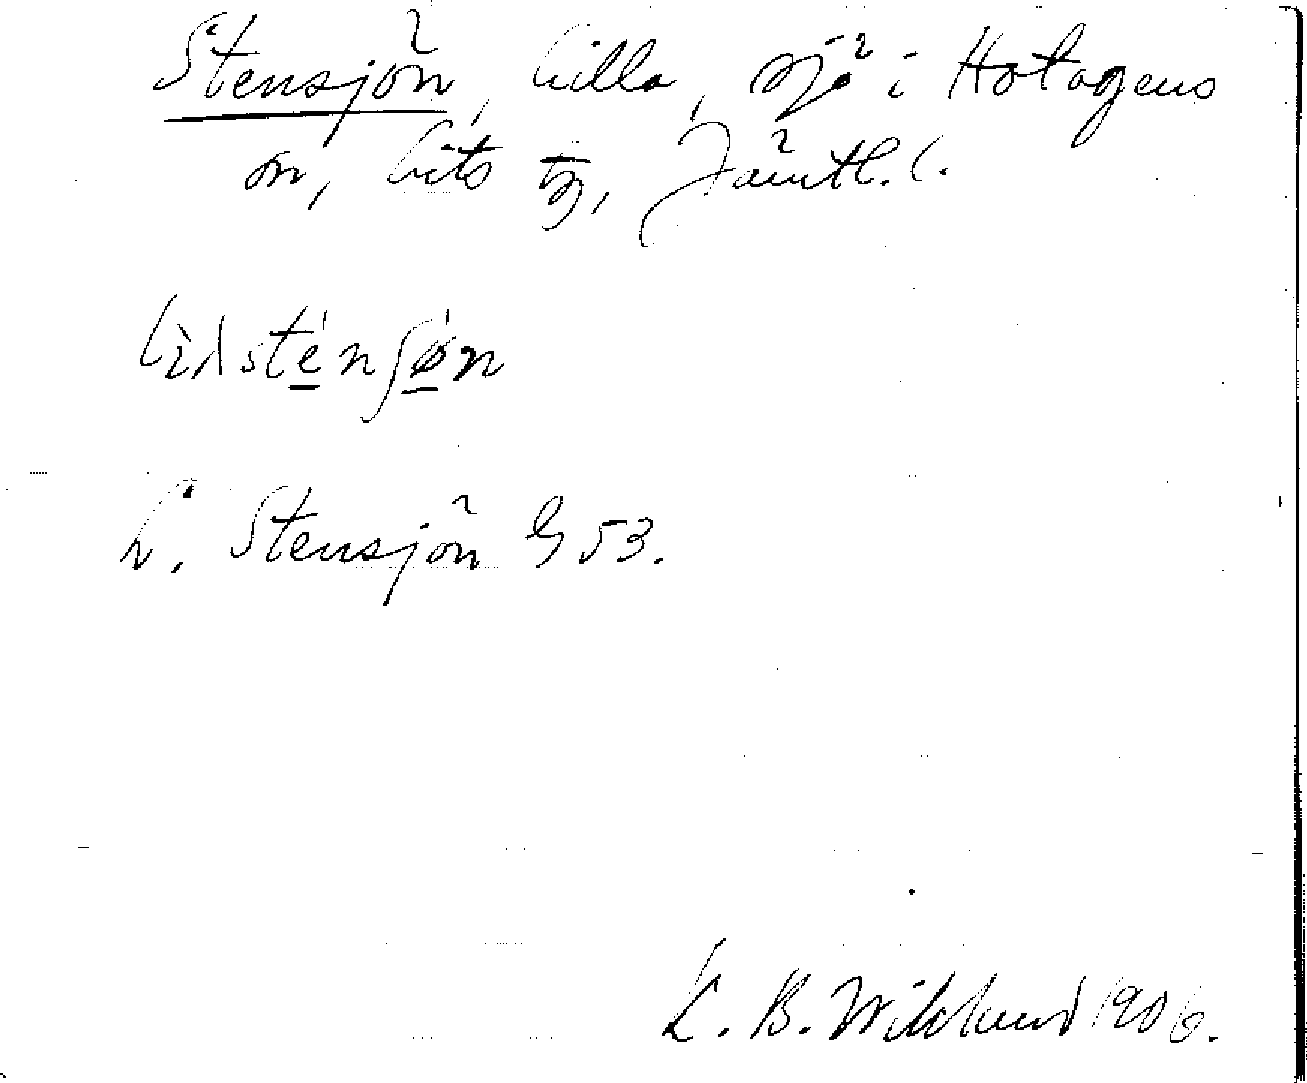 Stensjön, Lilla, sjö i Hotagens
sn, Lits tg, Jämtl. l.
lìlsténʃøn
L. Stensjön G 53.
K. B. Wiklund 1906.